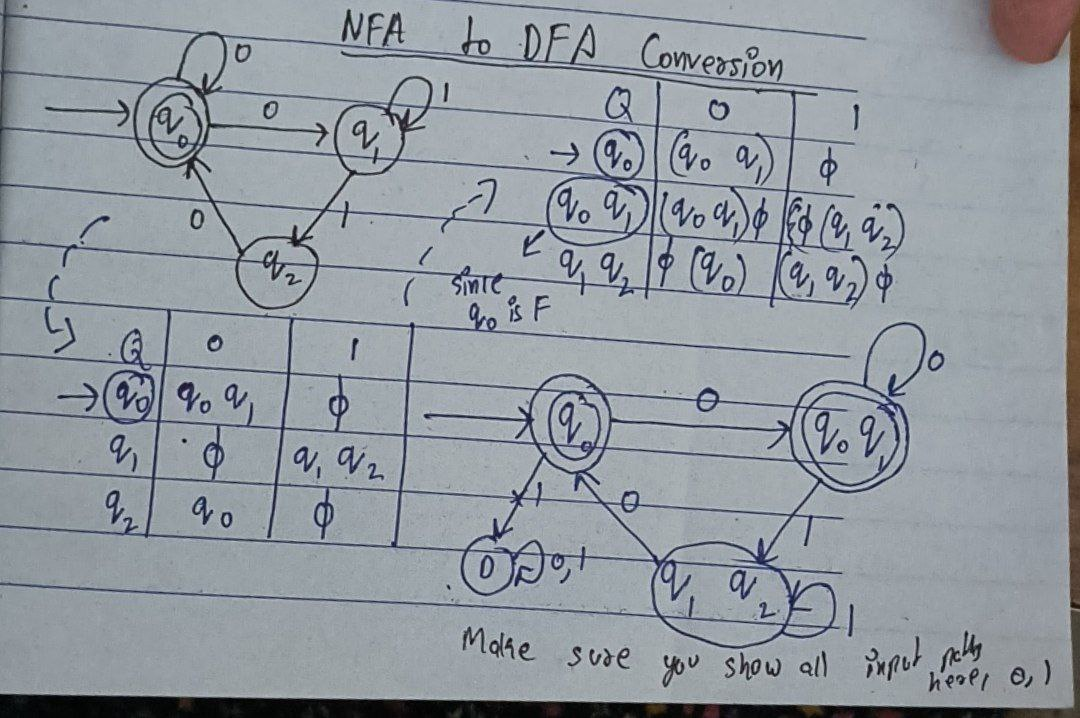 NFA to DFA Conversion
0
q0
0
q1
1
0
1
q2
Q 0 1
→ q0 (q0 q1) ϕ
q0 q1 (q0 q1) ϕ ϕ (q1 q2)
q1 q2 ϕ (q0) (q1 q2) ϕ
since
q0 is F
Q 0 1
→ q0 q0 q1 ϕ
q1 ϕ q1 q2
q2 q0 ϕ
0
q0
0
q0 q1
1
0
1
D
0,1
q1 q2
1
Make sure you show all input paths
here, 0,1